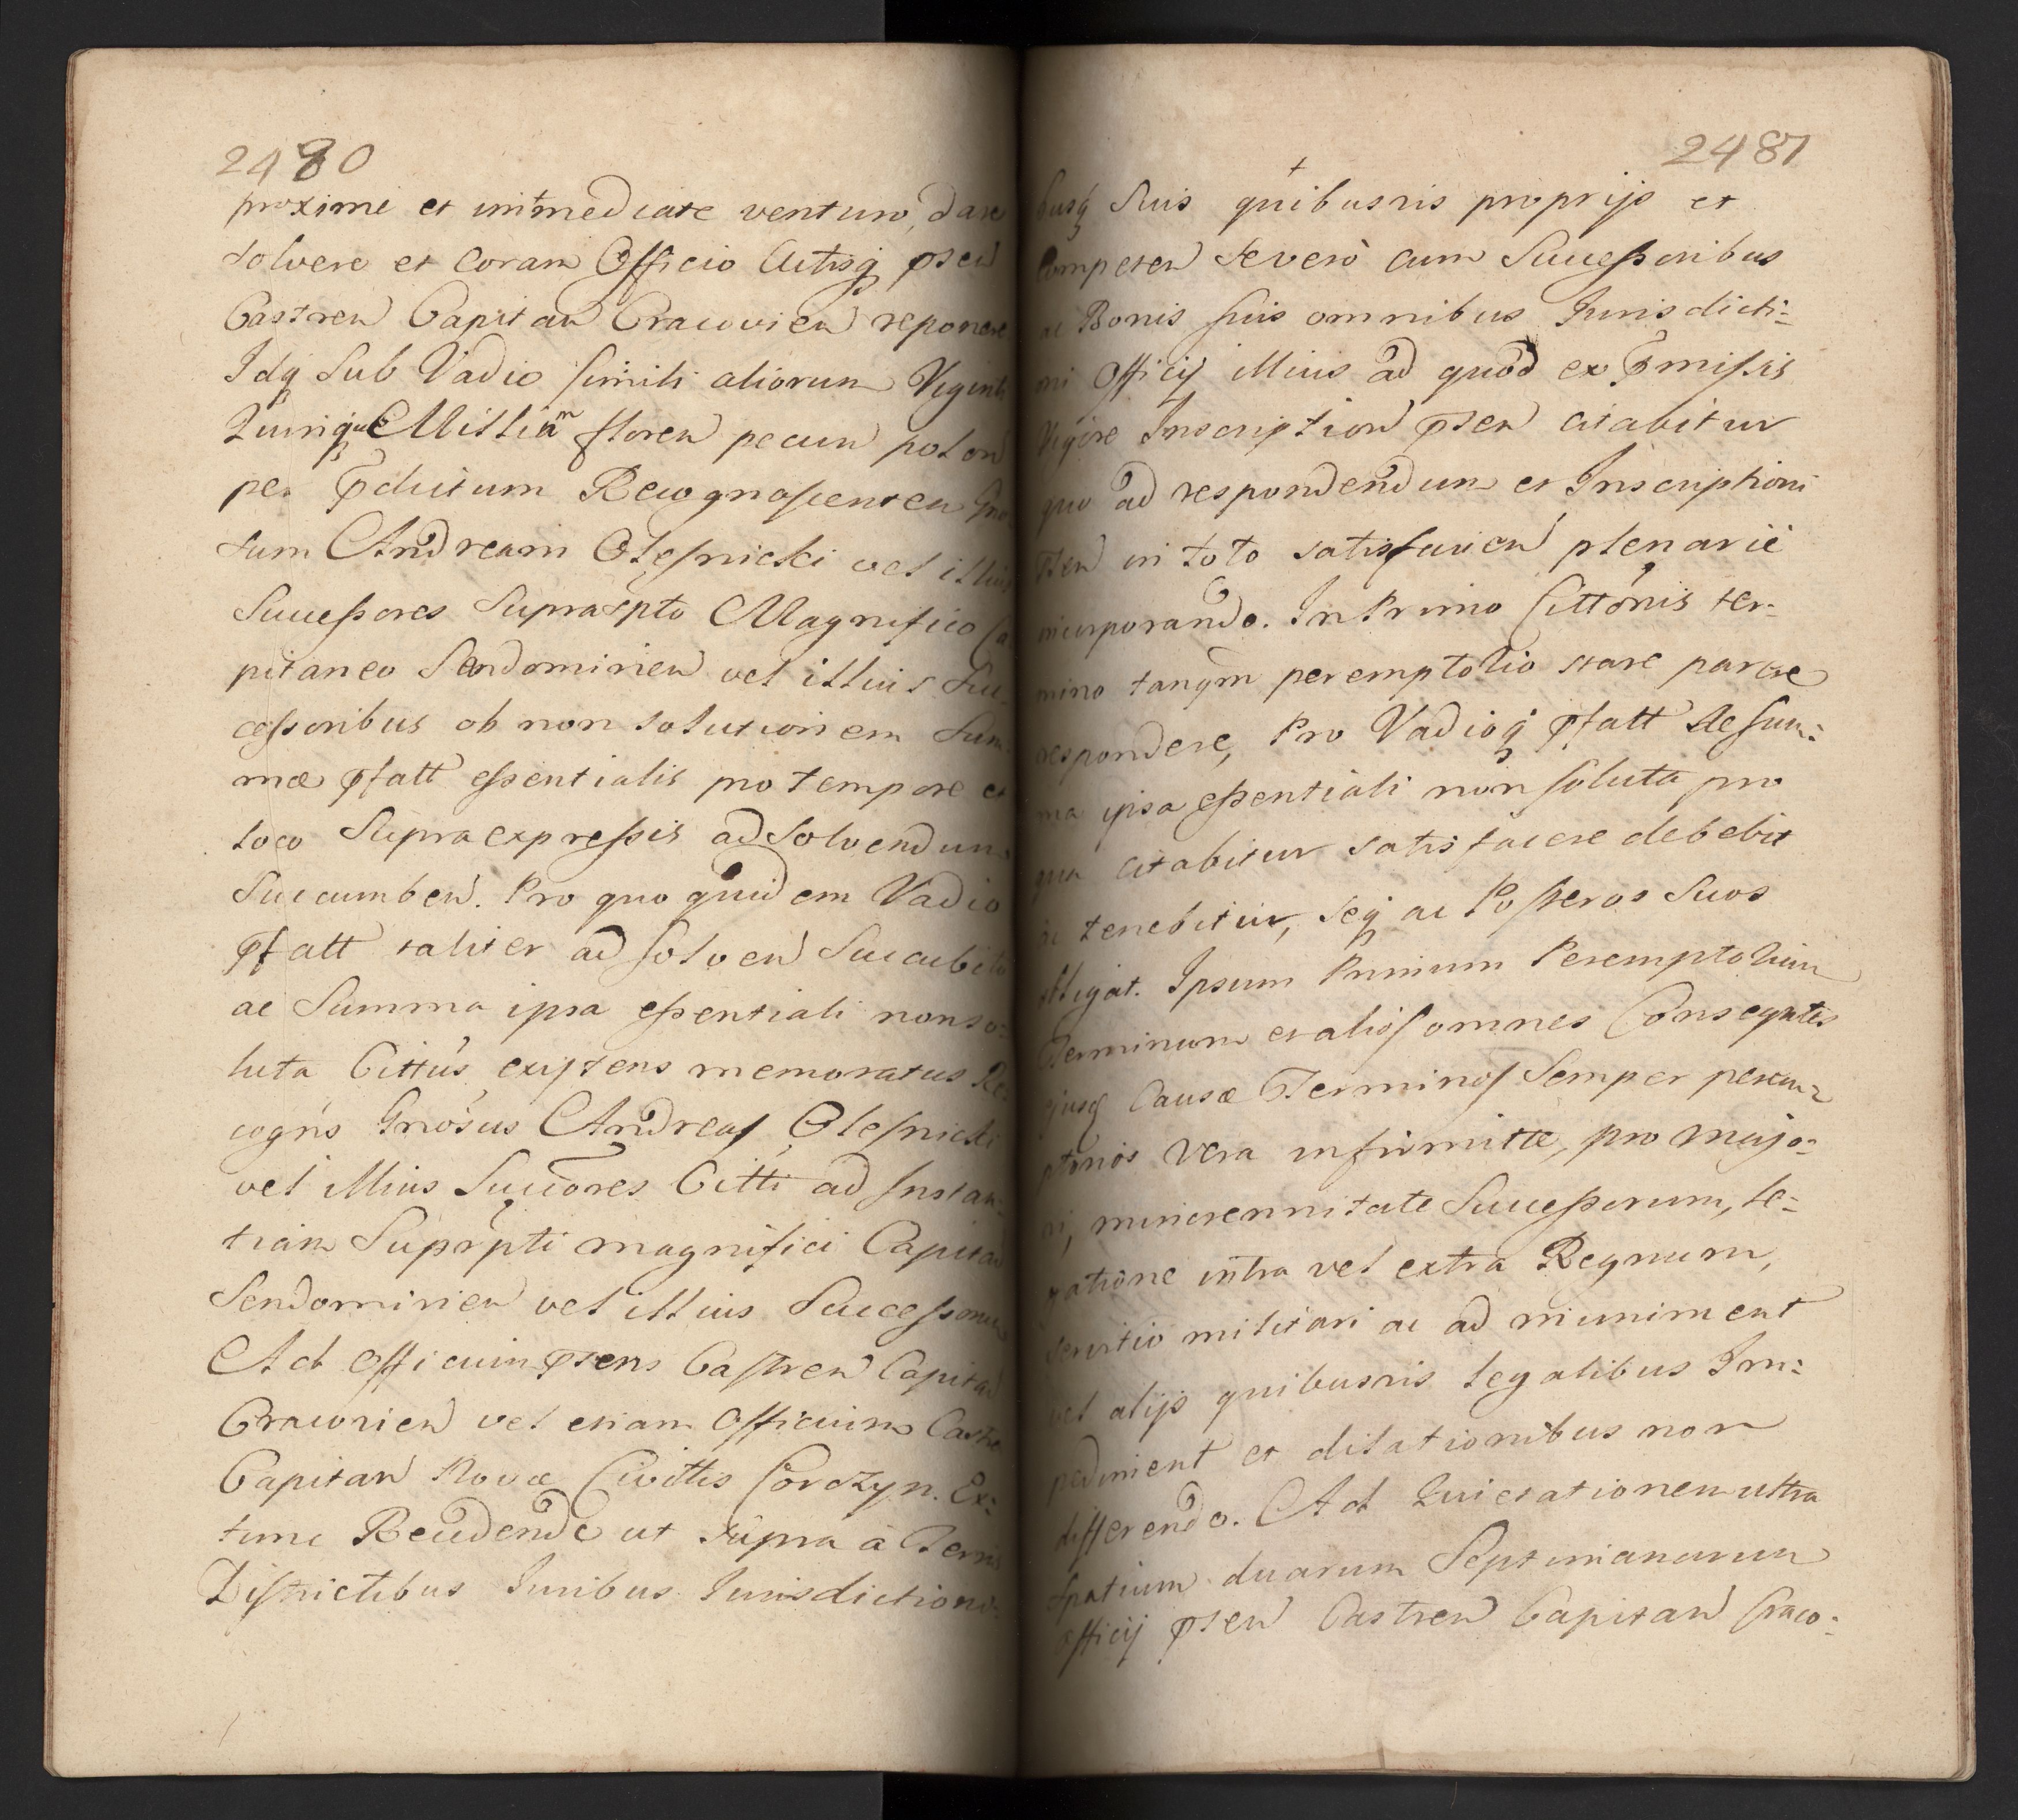 2480
proxime et immediate venturo, dare
solvere et coram Officio Actisq psen
Castren Capitan Cracovien reponere
Idq Sub Vadio simili aliorum Viginti
Quinque Millium floren pecun polon
per Pductum Recognoscentem Gno-
sum Andream Olesnicki vel illius
Successores Suprascpto Magnifico Ca
pitaneo Sendomirien vel illius Suc-
cessoribus ob non solutionem Sum-
mæ pfatt essentialis pro tempore et
loco Supra expressis ad Solvendum
Succumben. Pro quo quidem Vadio
Pfatt taliter ad solven Succubito
ac Summa ipsa essentiali nonso-
luta Cittus existens memoratus Re-
cogns Gnosus Andreas Olesnicki
vel illius Succores Citti ad Instan-
tiam Suprapti magnifici Capitan
Sendomirien vel illius Successorum
Ad officium psens Castren Capitan
Cracovien vel etiam Officium Castren
Capitan Novæ Civittis Corczyn. Ex-
tunc Recedendo ut supra à Terris
Districtibus Juribus Jurisdictioni-
2481
busq Suis quibusvis proprijs et
Competen Se vero cum Successoribus
ac Bonis suis omnibus Jurisdicti-
oni Officij illius ad quod ex Pmissis
Vigore Inscription psen citabitur
quo ad respondendum et Inscriptioni
psen in toto satisfacien plenarie
incorporando. In Primo Cittonis ter-
mino tanqm peremptorio stare parere
respondere, Pro Vadioq pfatt ac sum-
ma ipsa essentiali non soluta pro
qua citabitur satisfacere debebit
ac tenebitur, seq ac Posteros Suos
obligat. Ipsum Primum Peremptorium
Terminum et alios omnes Conseqntes
ejusq Causæ Terminos Semper perem-
ptorios vera infirmitte, pro majo-
ri, minorennitate Successorum, le-
gatione intra vel extra Regnum,
servitio militari ac ad muniment
vel alijs quibusvis legalibus Im-
pediment et dilationibus non
differendo. Ad Quietationem ultra
spatium duarum Septimanarum
officij psen Castren Capitan Craco-